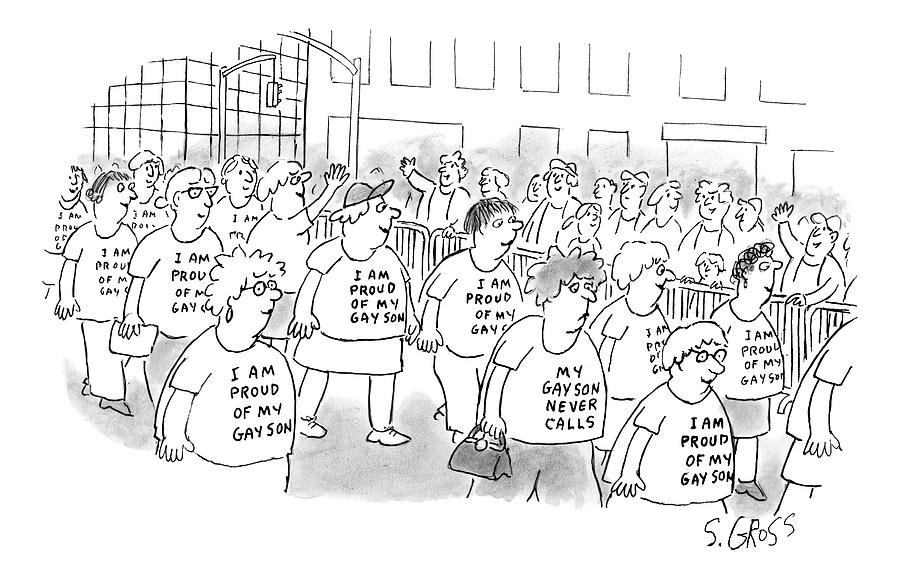 I AM
PROUD
OF MY
G
I AM
PROUD
OF MY
GAY S
I AM
I AM
PROUD
OF MY
GAY
I AM
I AM
PROUD
OF MY
GAY SON
I AM
PROUD
OF MY
GAY SON
I AM
PROUD
OF MY
GAY S
MY
GAY SON
NEVER
CALLS
I AM
OF
I AM
PROUD
OF MY
GAY SON
I AM
PROUD
OF MY
GAY SON
S. GROSS